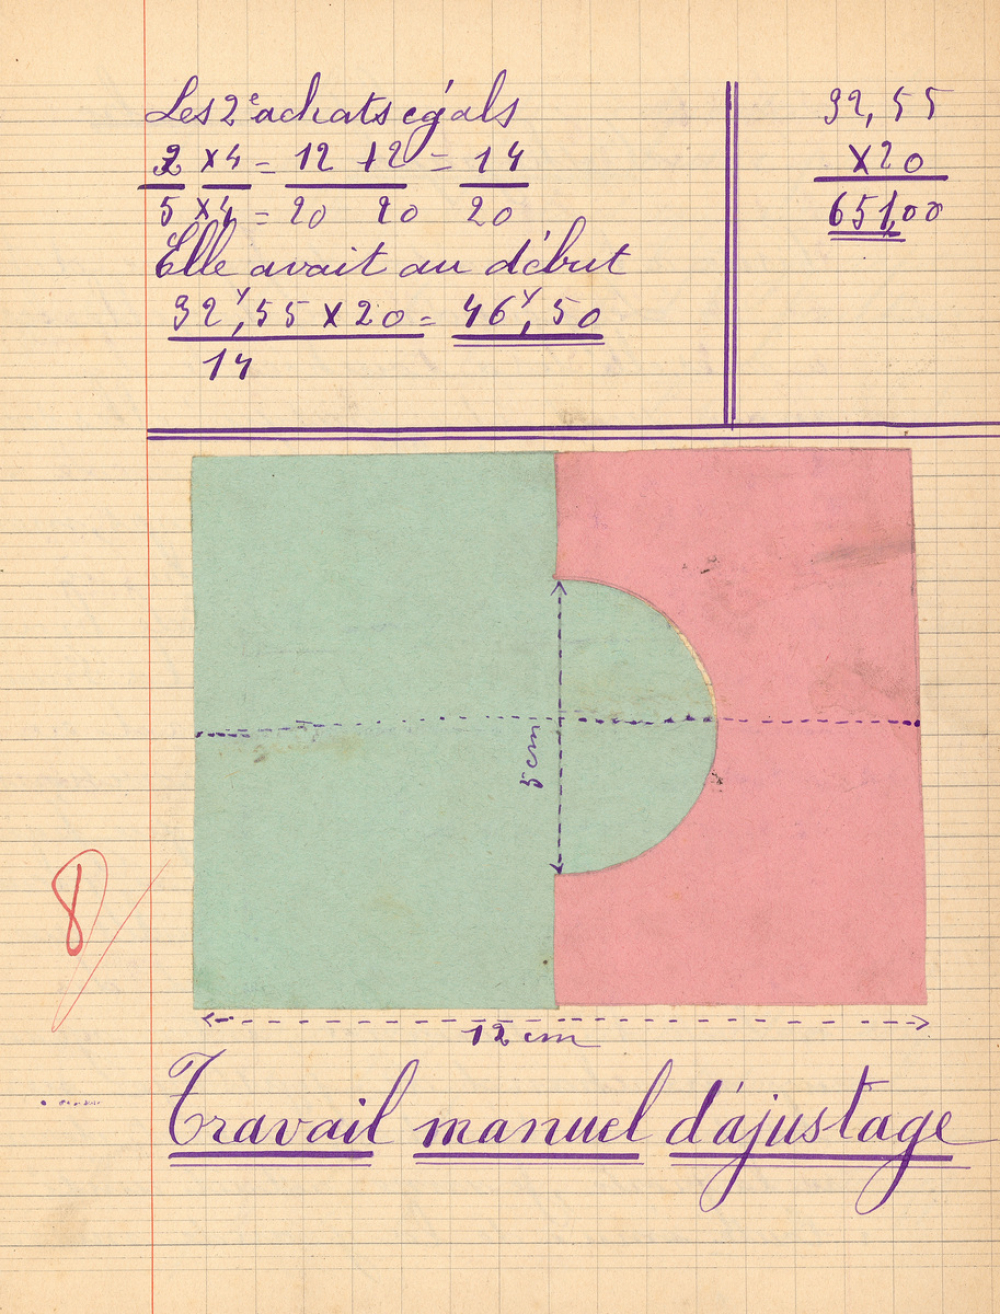 Les 2e achats égals
2 x4 = 12 +2 = 14
5 x4 = 20 20 20
Elle avait au début
32,55 x 20 = 46,50
14
32,55
x20
651,00
5 cm
8
12 cm
Travail manuel d'ajustage